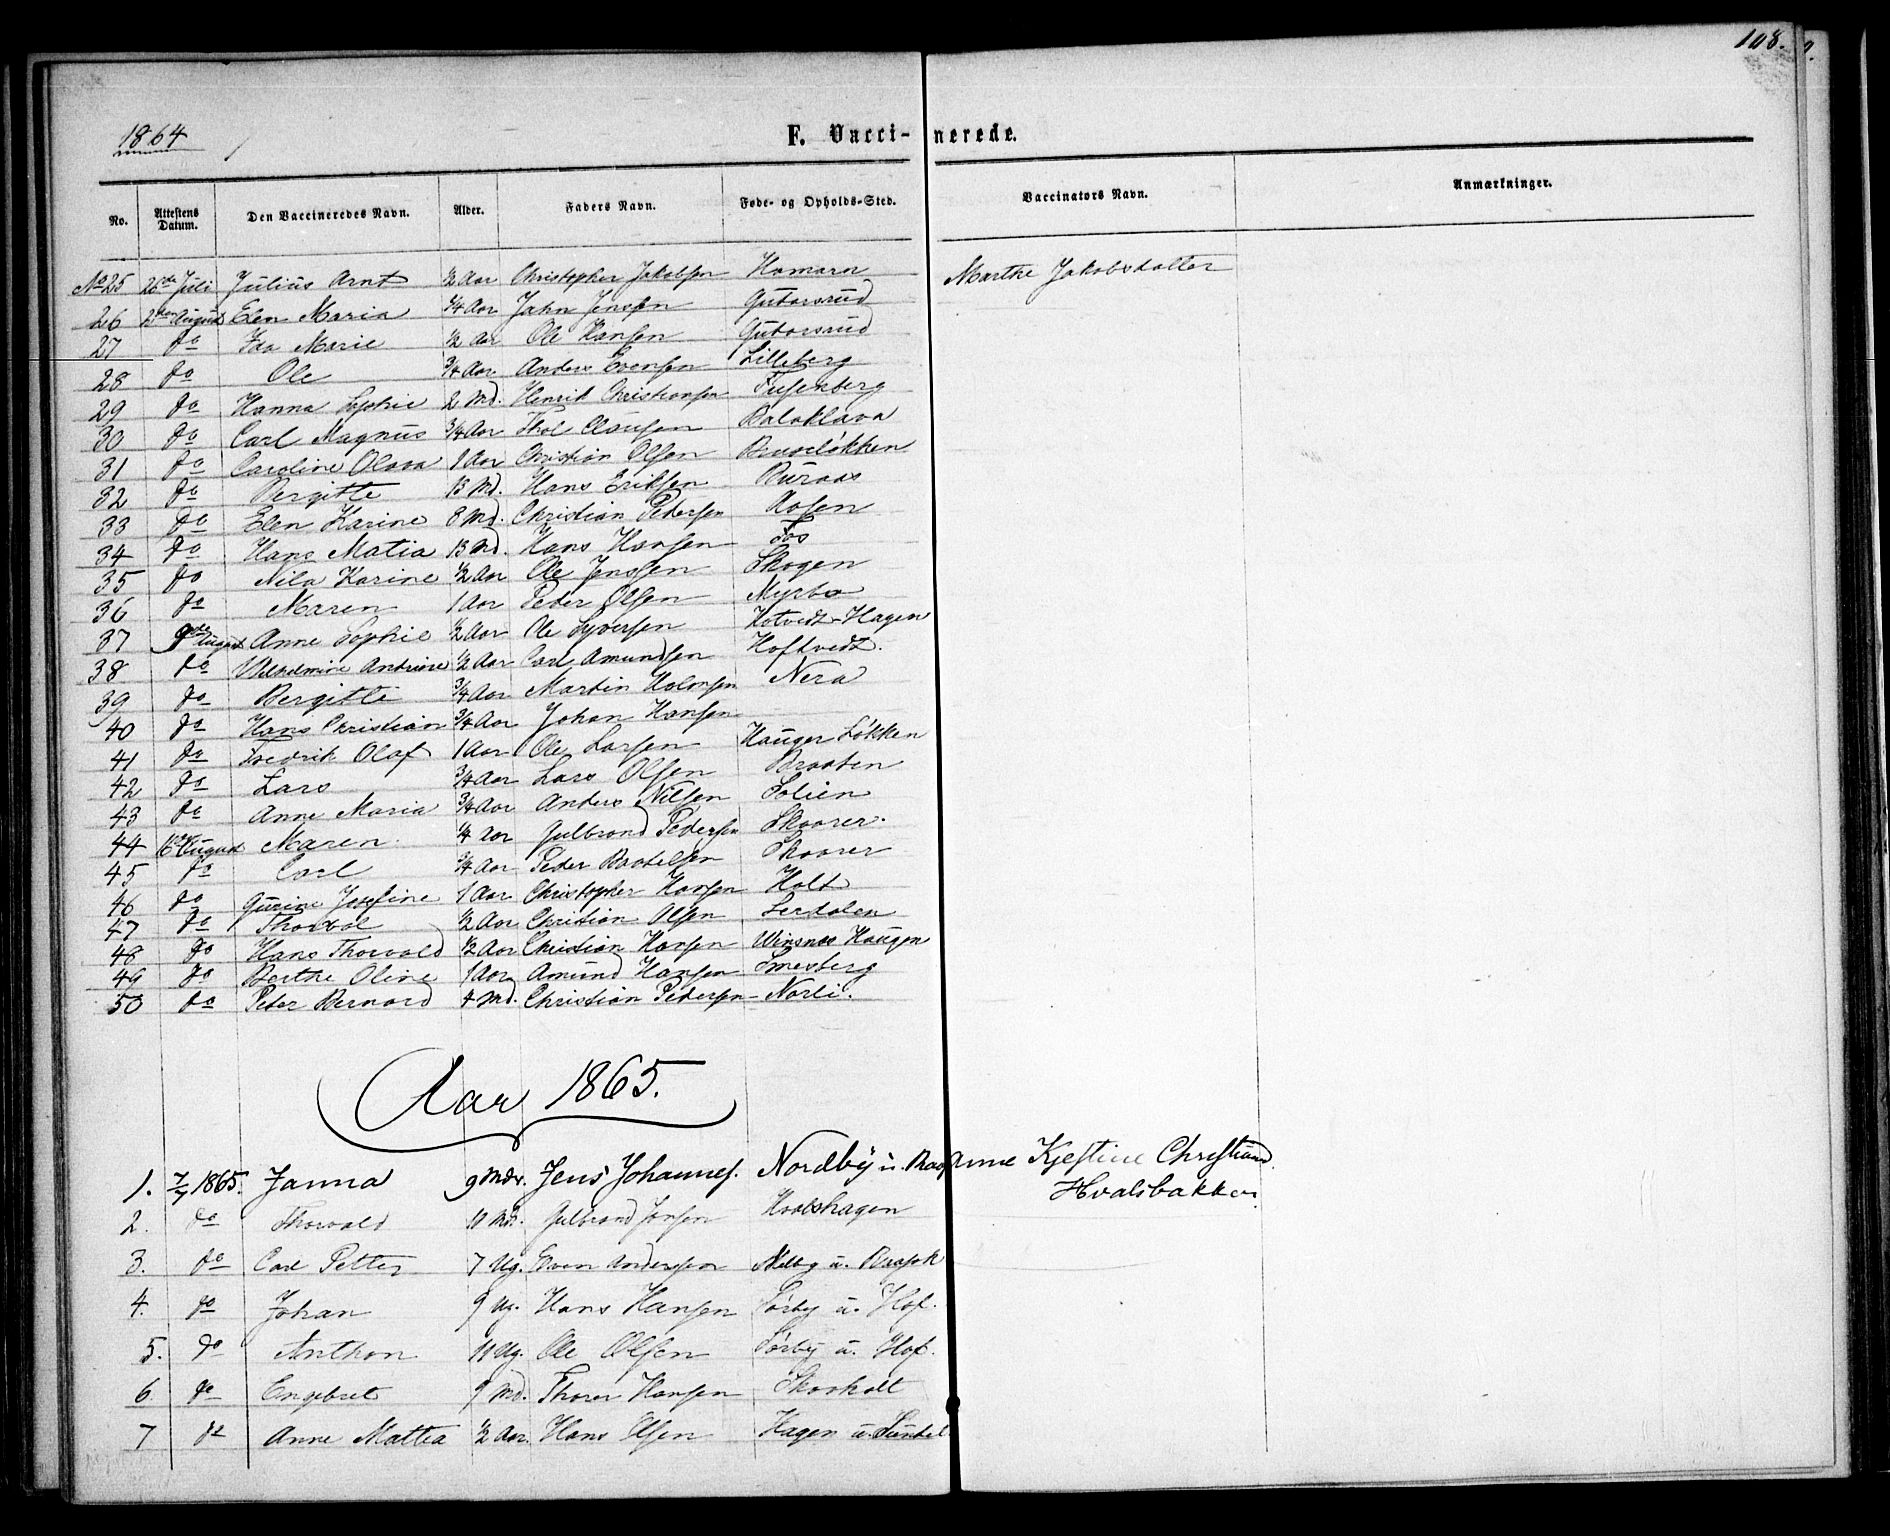 108.
1864
F. Vacci- nerede.
No. Attestens Datum. Den Vaccineredes Navn. Alder. Faders Navn. Føde- og Opholds-Sted. Vaccinators Navn. Anmærkninger.
No 25 26de Juli Julius Arnt ½ Aar Christopher Jakobsen Hamarn Marthe Jakobsdatter
26 2den August Elen Maria ¼ Aar Jahn Jensen Gutorsrud
27 do Ida Marie ½ Aar Ole Hansen Gutorsrud
28 do Ole ¾ Aar Anders Evensen Lilleberg
29 do Hanna Sophie 2 Md. Henrik Christiansen Fusenberg
30 do Carl Magnus ¾ Aar Thol Clausen Balaklava
31 do Caroline Olava 1 Aar Christian Olsen Bruveløkken
32 do Bergitte 13 Md. Hans Eriksen Buraas
33 do Elen Karine 8 Md. Christian Pedersen Aasen
34 do Hans Matia 13 Md. Hans Hansen Fos
35 do Nila Karine ½ Aar Ole Jenssen Skogen
36 do Maren 1 Aar Peder Olsen Myrbo
37 9de August Anne Sophie ½ Aar Ole Syversen Hotvedt-Hagen
38 do Wilhelmine Andrine ½ Aar Carl Amundsen Hoftvedt.
39 do Bergitte ¾ Aar Martin Holmsen Nera
40 do Hans Christian ¾ Aar Johan Hansen
41 do Fredrik Olaf 1 Aar Ole Larsen Hauger Løkken
42 do Lars ¾ Aar Lars Olsen Braaten
43 do Anne Maria ¾ Aar Anders Nilsen Solien
44 16de August Maren. ¼ Aar Gulbrand Pedersen Skaarer.
45 do Carl ¾ Aar Peder Baatelsen Skaarer
46 do Gurine Josefine 1 Aar Christopher Hansen Holt
47 do Thorval ½ Aar Christian Olsen Lerdalen
48 do Hans Thorvald ½ Aar Christian Hansen Winsnes Haugen
49 do Berthe Oline 1 Aar Amund Hansen Smesberg
50 do Peter Bernard 4 Md. Christian Pedersen - Narli.
Aar 1865.
1. 7/7 1865. Janna 9 Mdr. Jens Johannes. Nordby u. Anne Kjestine Christians.
Hvalsbakken
2. do Thorvald 11 Md. Gulbrand Jensen Hvalshagen
3. do Carl Petter 7 Ug. Even Anderssen Melby u.
4. do Johan 9 Ug. Hans Hansen Sørby u. Hof.
5. do Anthon 11 Ug. Ole Olsen Sørby u. Hof.
6 do Engebret 9 Md. Thorer Hansen Skovholt
7 do Anne Mattea ½ Aar. Hans Olsen Hagen u.